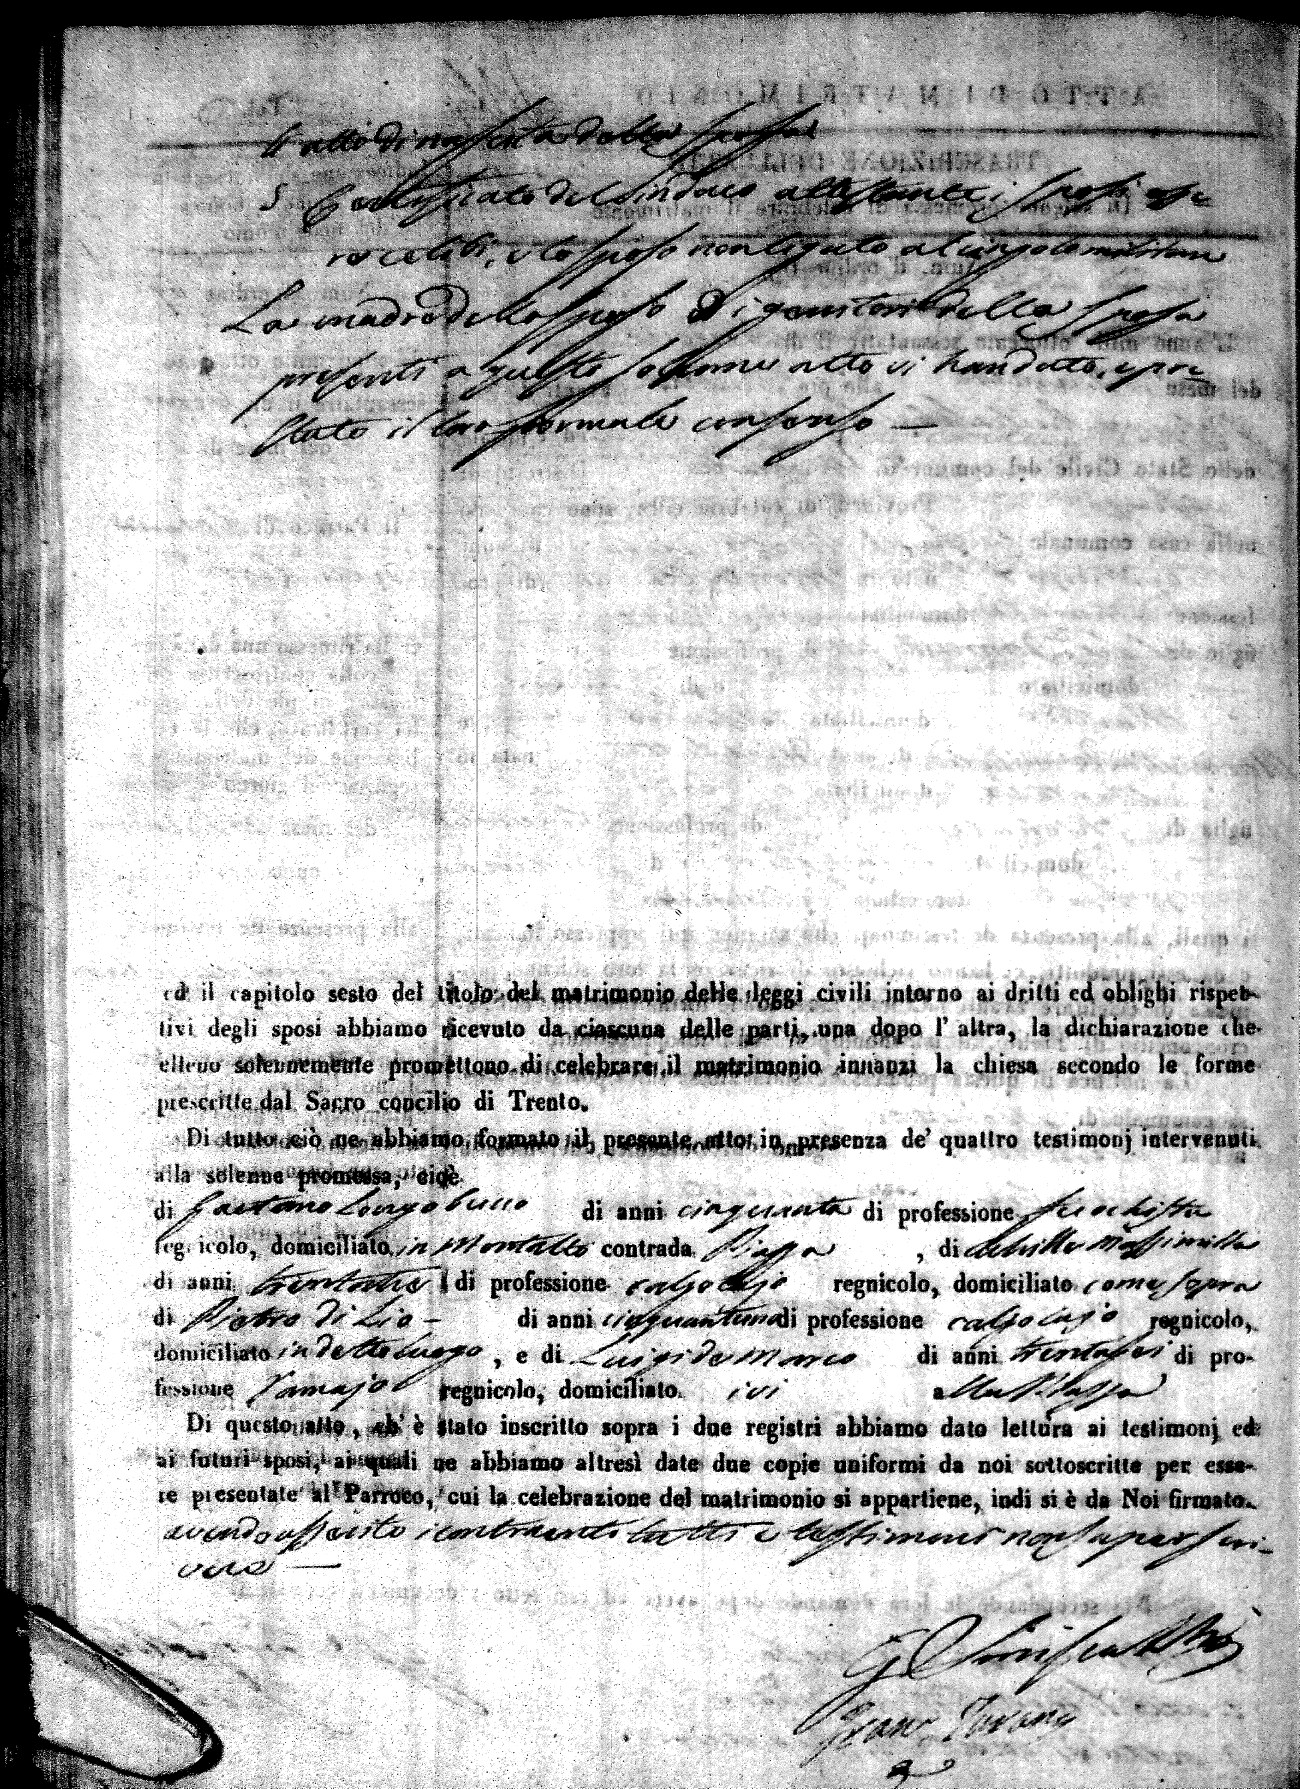 4 atto di nascita della sposa
5 Certificato del Sindaco attestante i sposi esse
re celibi, e lo sposo non legato al cingolo militare
La madre dello sposo e i genitori della sposa
presenti a questo solenne atto vi han dato, e pre
stato il loro formale consenso —
ed il capitolo sesto del titolo del matrimonio delle leggi civili intorno ai dritti ed oblighi rispet-
tivi degli sposi abbiamo ricevuto da ciascuna delle parti, una dopo l' altra, la dichiarazione che
elleno solennemente promettono di celebrare il matrimonio innanzi la chiesa secondo le forme
prescritte dal Sacro concilio di Trento.
Di tutto ciò ne abbiamo formato il presente atto in presenza de' quattro testimonj intervenuti
alla solenne promessa, cioè
di Gaetano Longobucco di anni cinquanta di professione
regnicolo, domiciliato in Montalto contrada Piazza, di Achille Massimilla
di anni trentatre di professione calzolajo regnicolo, domiciliato come sopra
di Pietro di Lio - di anni cinquantuno di professione calzolajo regnicolo,
domiciliato in detto luogo, e di Luigi de Marco di anni trentasei di pro-
fessione regnicolo, domiciliato ivi alla Piazza
Di questo atto, ch' è stato inscritto sopra i due registri abbiamo dato lettura ai testimonj ed
ai futuri sposi, ai quali ne abbiamo altresì date due copie uniformi da noi sottoscritte per esse-
re presentate al Parroco, cui la celebrazione del matrimonio si appartiene, indi si è da Noi firmato
avendo asserito i contraenti tutti e testimoni non saper scri-
vere —